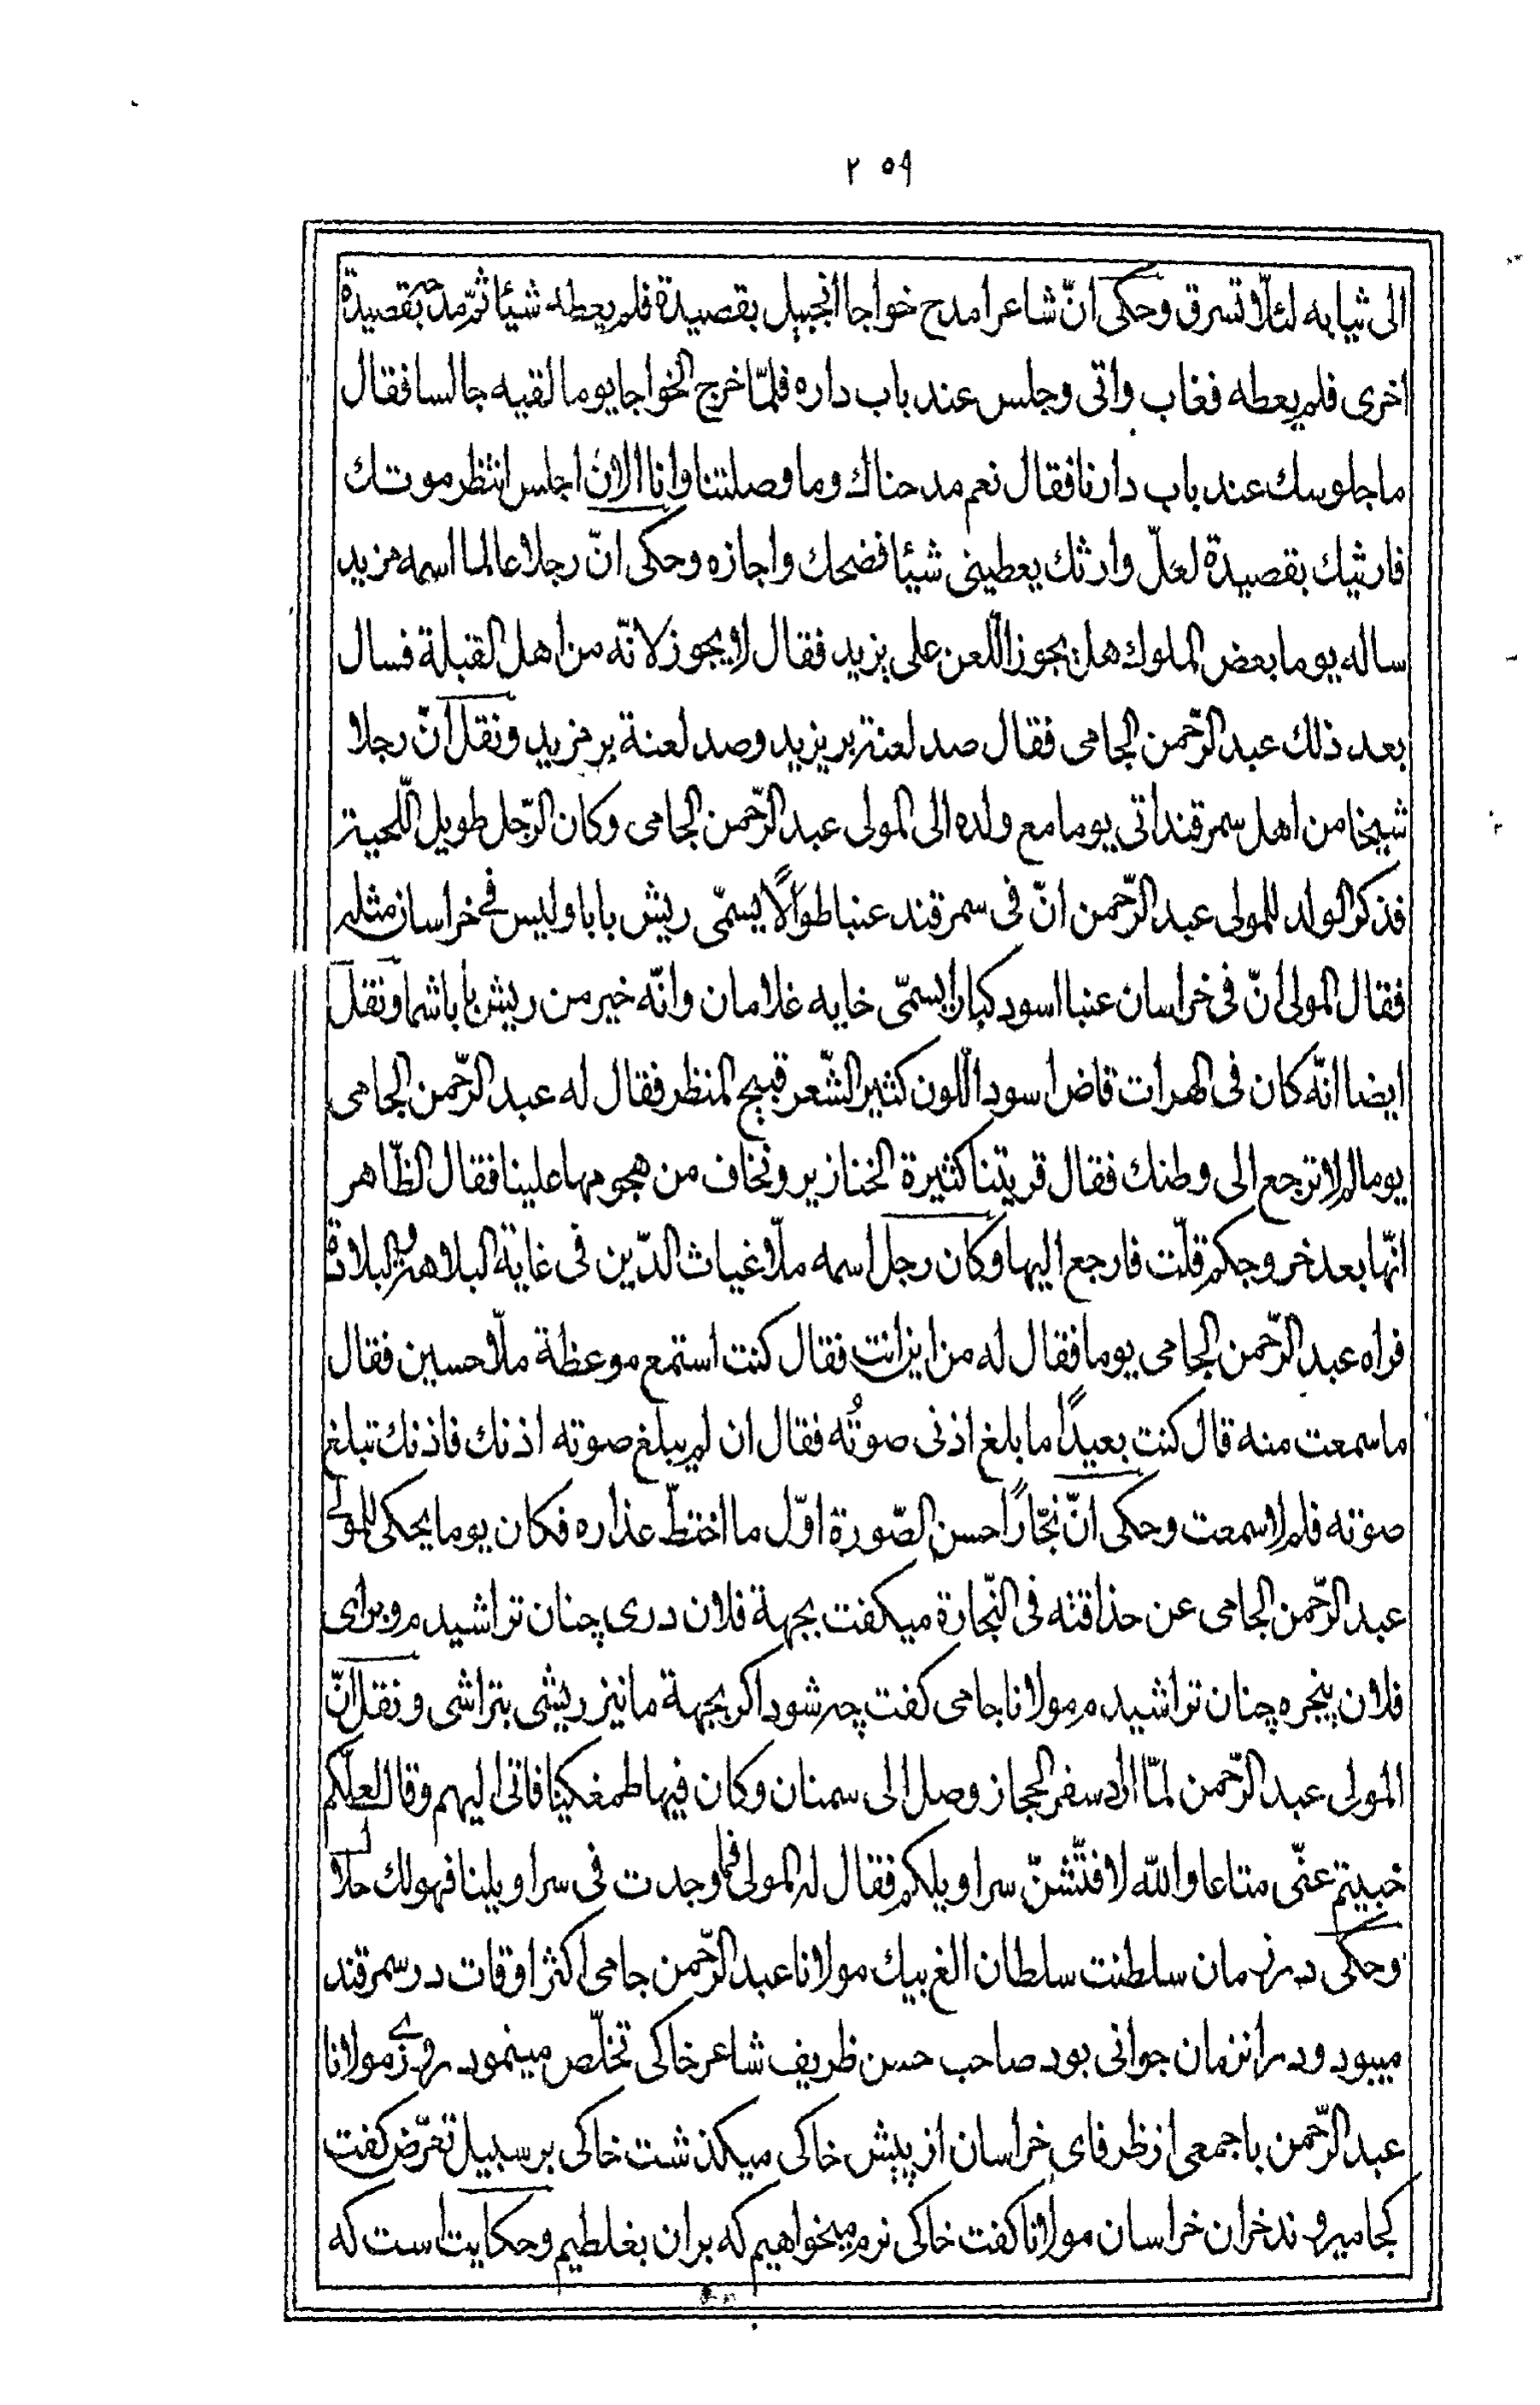 ٢٥٩
الى ثيابه لئلّا تسرق وحكى انّ شاعرا مدح خواجا انجبيل بقصيدة فلم يعطه شيئا ثمّ مدحه بقصيدة
اخرى فلم يعطه فغاب واتى وجلس عند باب داره فلمّا خرج الخواجا يوما لقيه جالسا فقال
ما جلوسك عند باب دارنا فقال نعم مدحناك وما وصلتنا وانا الان اجلس انتظر موتك
فارثيك بقصيدة لعلّ وارثك يعطينى شيئا فضحك واجازه وحكى انّ رجلا عالما اسمه مزيد
ساله يوما بعض الملوك هل يجوز اللّعن على يزيد فقال لا يجوز لانّه من اهل القبلة فسال
بعد ذلك عبد الرّحمن الجامى فقال صد لعنة بر يزيد وصد لعنة بر مزيد ونقل انّ رجلا
شيخا من اهل سمرقند اتى يوما مع ولده الى المولى عبد الرّحمن الجامى وكان الرّجل طويل اللّحية
فذكر الولد للمولى عبد الرّحمن انّ فى سمرقند عنبا طوالًا يسمّى ريش بابا وليس فى خراسان مثله
فقال المولى انّ فى خراسان عنبا اسود كبارا يسمّى خايه غلامان وانّه خير من ريش بابا شما ونقل
ايضا انّه كان فى الهرات قاض اسود اللّون كثير الشّعر قبيح المنظر فقال له عبد الرّحمن الجامى
يوما لم لا ترجع الى وطنك فقال قريتنا كثيرة الخنازير ونخاف من هجومها علينا فقال الظّاهر
انّها بعد خروجكم قلّت فارجع اليها وكان رجل اسمه ملّا غياث الدّين فى غاية البلاهة والبلادة
فراه عبد الرّحمن الجامى يوما فقال له من اين انت فقال كنت استمع موعظة ملّا حسين فقال
ما سمعت منه قال كنت بعيدًا ما بلغ اذنى صوتُه فقال ان لم يبلغ صوته اذنك فاذنك تبلغ
صوته فلم لا سمعت وحكى انّ نجّارًا حسن الصّورة اوّل ما اختطّ عذاره فكان يوما يحكى للمولى
عبد الرّحمن الجامى عن حذاقته فى النّجارة ميكفت بجهة فلان درى چنان تراشيدم وبراى
فلان پنجره چنان تراشيدم مولانا جامى كفت چه شود اكر بجهة ما نيز ريشى بتراشى ونقل انّ
المولى عبد الرّحمن لمّا اراد سفر الحجاز وصل الى سمنان وكان فيها طمغكيا فاتى اليهم وقال لعلّكم
خبيتم عنّى متاعا والله لافتّشنّ سراويلكم فقال له المولى فما وجدت فى سراويلنا فهو لك حلالا
وحكى در زمان سلطنت سلطان الغ بيك مولانا عبد الرّحمن جامى اكثر اوقات در سمرقند
ميبود ودر انزمان جوانى بود صاحب حسن ظريف شاعر خاكى تخلّص مينمود روزى مولانا
عبد الرّحمن با جمعى از ظرفاى خراسان از پيش خاكى ميكذشت خاكى بر سبيل تعرّض كفت
كجا ميروند خران خراسان مولانا كفت خاكى نرم ميخواهيم كه بران بغلطيم وحكايت است كه